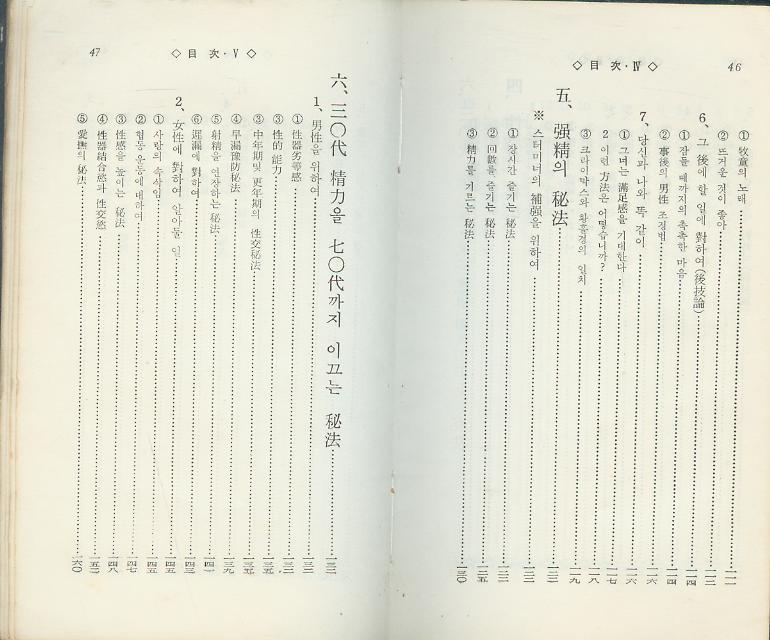 46
◇ 目 次・Ⅳ ◇
① 牧童의 노래 一一一
② 뜨거운 것이 좋아 一一二
6、그 後에 할 일에 對하여(後技論) 一一四
① 잠들 때까지의 촉촉한 마음 一一四
② 事後의 男性 조정법 一一六
7、당신과 나와 똑 같이 一一六
① 그녀는 滿足感을 기대한다 一一七
2 이런 方法은 어떻습니까? 一一八
③ 크라이막스와 황홀경의 일치 一一九
五、强精의 秘法
※ 스터미너의 補强을 위하여
① 장시간 즐기는 秘法
② 回數를 즐기는 秘法 一二五
③ 精力를 기르는 秘法 一三〇
47
◇ 目 次・Ⅴ ◇
六、三〇代 精力을 七〇代까지 이끄는 秘法 一三二
1、男性을 위하여 一三二
① 性器劣等感 一三二
③ 性的 能力 一三五
③ 中年期및 更年期의 性交秘法 一三五
④ 早漏豫防秘法 一三九
⑤ 射精을 연장하는 秘法 一四一
⑥ 遲漏에 對하여 一四三
2、女性에 對하여 알아둘 일 一四五
① 사랑의 속삭임 一四五
② 협동 운동에대하여 一四七
③ 性感을 높이는 秘法 一四八
④ 性器結合慾과 性交慾 一五二
⑤ 愛撫의 秘法 一六〇